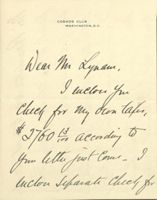 COSMOS CLUB
WASHINGTON, D.C.
Dear Mr Lynam,
I inclose you
check for my own taxes,
$2760 13/100 according to
your letter just come - I
inclose separate check for